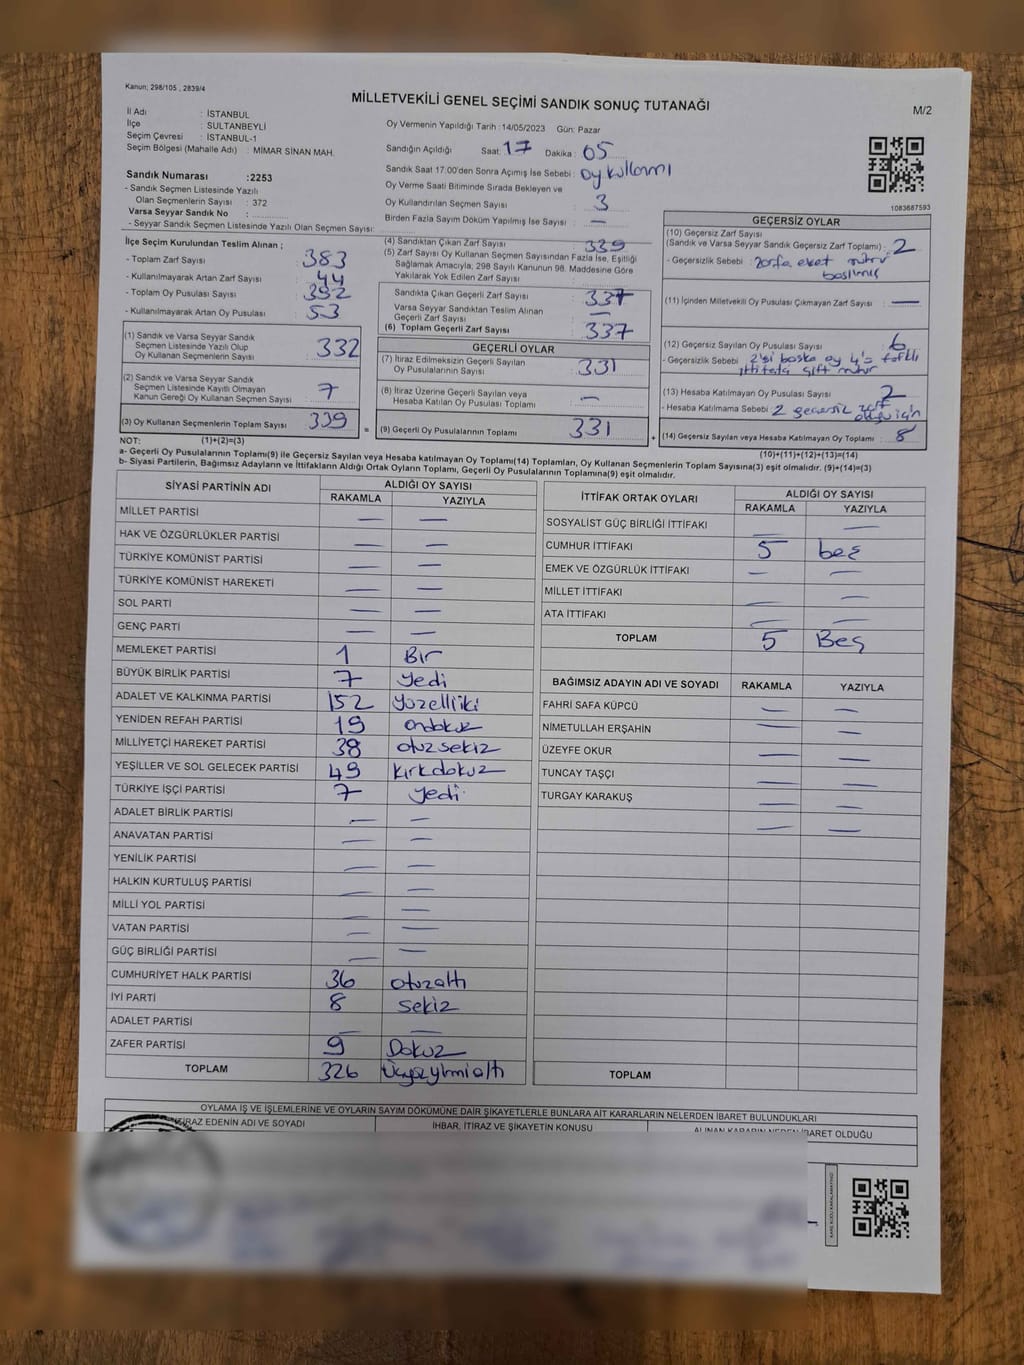 Kanun; 298/105 , 2839/4
MİLLETVEKİLİ GENEL SEÇİMİ SANDIK SONUÇ TUTANAĞI
M/2
İl Adı : İSTANBUL
İlçe : SULTANBEYLİ
Seçim Çevresi : İSTANBUL-1
Seçim Bölgesi (Mahalle Adı) : MİMAR SİNAN MAH.
Sandık Numarası :2253
- Sandık Seçmen Listesinde Yazılı
Olan Seçmenlerin Sayısı : 372
Varsa Seyyar Sandık No :
- Seyyar Sandık Seçmen Listesinde Yazılı Olan Seçmen Sayısı:
Oy Vermenin Yapıldığı Tarih :14/05/2023 Gün: Pazar
Sandığın Açıldığı Saat: 17 Dakika: 05
Sandık Saat 17:00'den Sonra Açımış İse Sebebi : oy kullanımı
Oy Verme Saati Bitiminde Sırada Bekleyen ve
Oy Kullandırılan Seçmen Sayısı : 3
Birden Fazla Sayım Döküm Yapılmış İse Sayısı : —
1083687593
İlçe Seçim Kurulundan Teslim Alınan ;
- Toplam Zarf Sayısı : 383
- Kullanılmayarak Artan Zarf Sayısı : 44
- Toplam Oy Pusulası Sayısı : 392
- Kullanılmayarak Artan Oy Pusulası : 53
(1) Sandık ve Varsa Seyyar Sandık
Seçmen Listesinde Yazılı Olup
Oy Kullanan Seçmenlerin Sayısı : 332
(2) Sandık ve Varsa Seyyar Sandık
Seçmen Listesinde Kayıtlı Olmayan
Kanun Gereği Oy Kullanan Seçmen Sayısı : 7
(3) Oy Kullanan Seçmenlerin Toplam Sayısı : 339
(4) Sandıktan Çıkan Zarf Sayısı : 339
(5) Zarf Sayısı Oy Kullanan Seçmen Sayısından Fazla İse, Eşitliği
Sağlamak Amacıyla, 298 Sayılı Kanunun 98. Maddesine Göre
Yakılarak Yok Edilen Zarf Sayısı :
Sandıkta Çıkan Geçerli Zarf Sayısı : 337
Varsa Seyyar Sandıktan Teslim Alınan
Geçerli Zarf Sayısı : —
(6) Toplam Geçerli Zarf Sayısı : 337
GEÇERLİ OYLAR
(7) İtiraz Edilmeksizin Geçerli Sayılan
Oy Pusulalarının Sayısı : 331
(8) İtiraz Üzerine Geçerli Sayılan veya
Hesaba Katılan Oy Pusulası Toplamı : —
(9) Geçerli Oy Pusulalarının Toplamı : 331
GEÇERSİZ OYLAR
(10) Geçersiz Zarf Sayısı
(Sandık ve Varsa Seyyar Sandık Geçersiz Zarf Toplamı) : 2
- Geçersizlik Sebebi : zarfa evet mührü
basılmış
(11) İçinden Milletvekili Oy Pusulası Çıkmayan Zarf Sayısı : —
(12) Geçersiz Sayılan Oy Pusulası Sayısı : 6
- Geçersizlik Sebebi : 2'si boşka oy 4'ü farklı
ittifata çift mühür
(13) Hesaba Katılmayan Oy Pusulası Sayısı : 2
- Hesaba Katılmama Sebebi : 2 geçersiz zarf
olduğu için
(14) Geçersiz Sayılan veya Hesaba Katılmayan Oy Toplamı : 8
NOT: (1)+(2)=(3) (10)+(11)+(12)+(13)=(14)
a- Geçerli Oy Pusulalarının Toplamı(9) ile Geçersiz Sayılan veya Hesaba katılmayan Oy Toplamı(14) Toplamları, Oy Kullanan Seçmenlerin Toplam Sayısına(3) eşit olmalıdır. (9)+(14)=(3)
b- Siyasi Partilerin, Bağımsız Adayların ve İttifakların Aldığı Ortak Oyların Toplamı, Geçerli Oy Pusulalarının Toplamına(9) eşit olmalıdır.
SİYASİ PARTİNİN ADI ALDIĞI OY SAYISI
RAKAMLA YAZIYLA
MİLLET PARTİSİ — —
HAK VE ÖZGÜRLÜKLER PARTİSİ — —
TÜRKİYE KOMÜNİST PARTİSİ — —
TÜRKİYE KOMÜNİST HAREKETİ — —
SOL PARTİ — —
GENÇ PARTİ — —
MEMLEKET PARTİSİ 1 Bir
BÜYÜK BİRLİK PARTİSİ 7 yedi
ADALET VE KALKINMA PARTİSİ 152 yüzelliiki
YENİDEN REFAH PARTİSİ 19 ondokuz
MİLLİYETÇİ HAREKET PARTİSİ 38 otuzsekiz
YEŞİLLER VE SOL GELECEK PARTİSİ 49 kırkdokuz
TÜRKİYE İŞÇİ PARTİSİ 7 yedi
ADALET BİRLİK PARTİSİ — —
ANAVATAN PARTİSİ — —
YENİLİK PARTİSİ — —
HALKIN KURTULUŞ PARTİSİ — —
MİLLİ YOL PARTİSİ — —
VATAN PARTİSİ — —
GÜÇ BİRLİĞİ PARTİSİ — —
CUMHURİYET HALK PARTİSİ 36 otuzaltı
İYİ PARTİ 8 sekiz
ADALET PARTİSİ — —
ZAFER PARTİSİ 9 Dokuz
TOPLAM 326 Üçyüzyirmialtı
İTTİFAK ORTAK OYLARI ALDIĞI OY SAYISI
RAKAMLA YAZIYLA
SOSYALİST GÜÇ BİRLİĞİ İTTİFAKI — —
CUMHUR İTTİFAKI 5 beş
EMEK VE ÖZGÜRLÜK İTTİFAKI — —
MİLLET İTTİFAKI — —
ATA İTTİFAKI — —
TOPLAM 5 Beş
BAĞIMSIZ ADAYIN ADI VE SOYADI RAKAMLA YAZIYLA
FAHRİ SAFA KÜPCÜ — —
NİMETULLAH ERŞAHİN — —
ÜZEYFE OKUR — —
TUNCAY TAŞÇI — —
TURGAY KARAKUŞ — —
— —
TOPLAM
OYLAMA İŞ VE İŞLEMLERİNE VE OYLARIN SAYIM DÖKÜMÜNE DAİR ŞİKAYETLERLE BUNLARA AİT KARARLARIN NELERDEN İBARET BULUNDUKLARI
İTİRAZ EDENİN ADI VE SOYADI İHBAR, İTİRAZ VE ŞİKAYETİN KONUSU ALINAN KARARIN NEDEN İBARET OLDUĞU